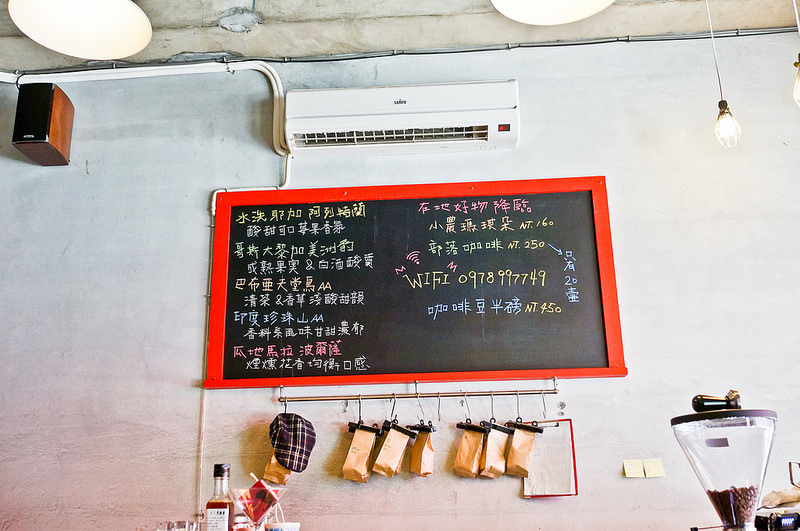 SANYO
水洗耶加 阿列特蘭
酸甜可口莓果香氛
哥斯大黎加美洲豹
成熟果実&白酒酸質
巴布亜天堂鳥AA
清茶&香草淺酸甜韻
印度珍珠山AA
香料系風味甘甜濃郁
瓜地馬拉 波爾薩
煙燻花香均衡口感
在地好物 降臨
小農瑪琪朵 NT.160
部落咖啡 NT.250
只有20壺
WIFI 0978997749
咖啡豆半磅 NT.450